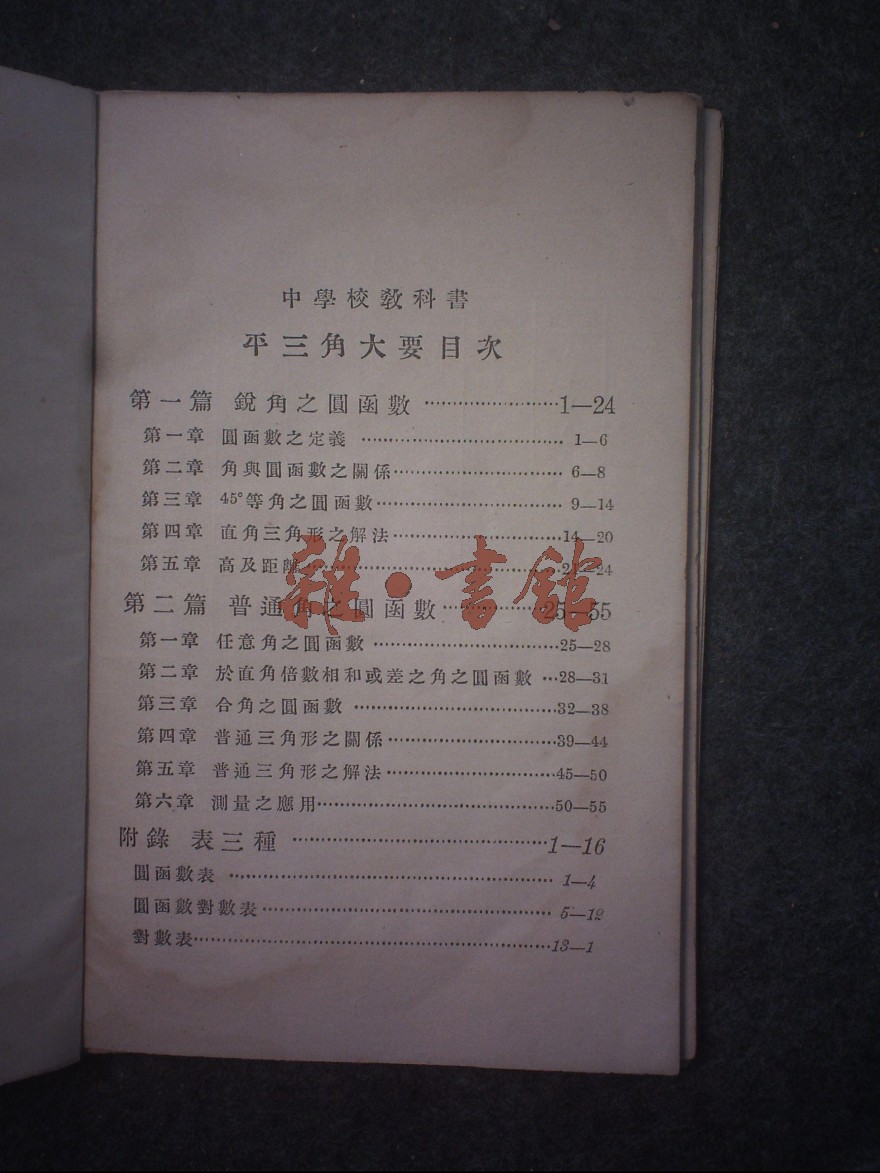 中學校敎科書
平三角大要目次
第一篇 銳角之圓函數 ……………………1—24
第一章 圓函數之定義 ……………………… 1—6
第二章 角與圓函數之關係…………………… 6—8
第三章 45°等角之圓函數…………………… 9—14
第四章 直角三角形之解法……………………14—20
第五章 高及距離……………………………21—24
第二篇 普通角之圓函數 ……………25—55
第一章 任意角之圓函數 ………………………25—28
第二章 於直角倍數相和或差之角之圓函數 …28—31
第三章 合角之圓函數 …………………………32—38
第四章 普通三角形之關係……………………39—44
第五章 普通三角形之解法……………………45—50
第六章 測量之應用……………………………50—55
附錄 表三種 ………………………………1—16
圓函數表 ………………………………………… 1—4
圓函數對數表…………………………………… 5—12
對數表……………………………………………13—1
雜·書館